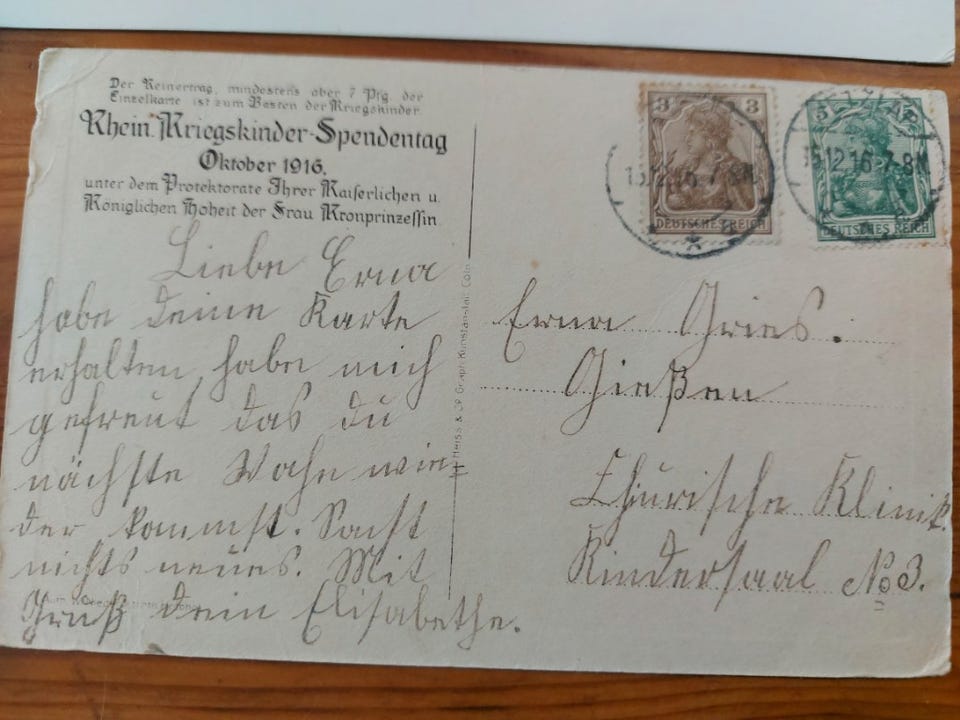 Der Reinertrag, mindestens aber 7 Pfg. der
Einzelkarte ist zum Besten der Kriegskinder.
Rhein. Kriegskinder-Spendentag
Oktober 1916.
unter dem Protektorate Ihrer Kaiserlichen u.
Königlichen Hoheit der Frau Kronprinzessin
Liebe Erna
habe deine Karte
erhalten, habe mich
gefreut das du
nächste Wohe wie-
der kommst. Sonst
nichts neues. Mit
Gruß dein Elisabethe.
Heiss & Co Graph. Kunstanstalt Cöln
3 3
DEUTSCHES REICH
15.12.16.7-8N
5 5
DEUTSCHES REICH
15.12.16.7-8N
Erna Gries.
Gießen
Chürische Klinik.
Kindersaal No 3.